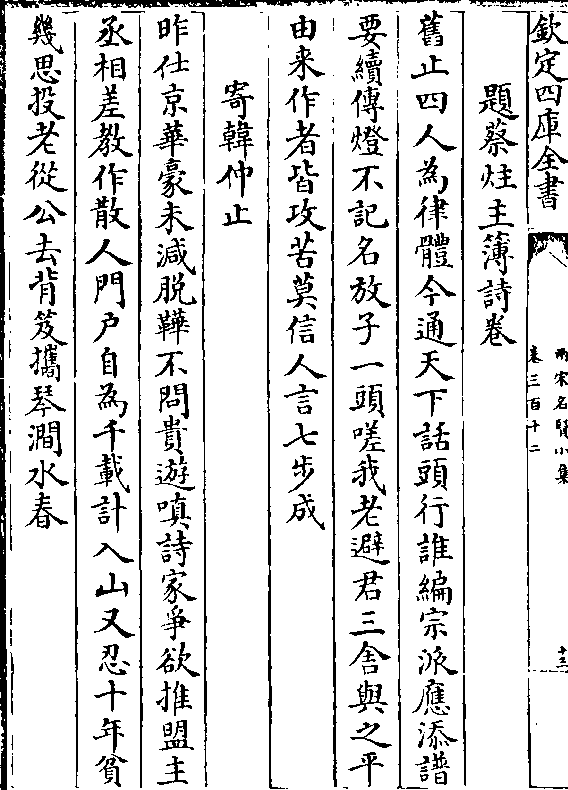 欽定四庫全書
兩宋名賢小集
卷三百十二
十三
題蔡炷主簿詩卷
舊止四人為律體今通天下話頭行誰編宗派應添譜
要續傳燈不記名放子一頭嗟我老避君三舍與之平
由来作者皆攻苦莫信人言七步成
寄韓仲止
昨仕京華豪未減脱鞾不問貴遊嗔詩家爭欲推盟主
丞相差教作散人門户自為千載計入山又忍十年貧
幾思投老從公去背笈攜琴澗水春